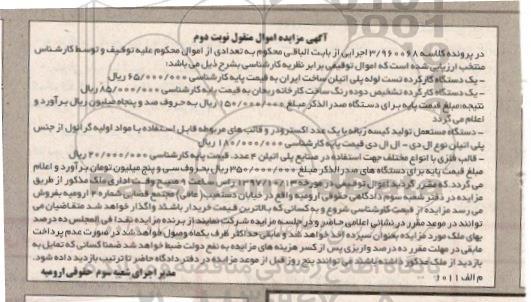 آگهی مزایده اموال منقول نوبت دوم
در پرونده کلاسه ۳/۹۶۰۰۶۸ اجرایی از بابت الباقی محکوم به تعدادی از اموال محکوم علیه توقیف و توسط کارشناس
منتخب ارزیابی شده است که اموال توقیفی برابر نظریه کارشناسی بشرح ذیل می باشد:
- یک دستگاه کارکرده تست لوله پلی اتیلن ساخت ایران به قیمت پایه کارشناسی ۶۵/۰۰۰/۰۰۰ ریال
- یک دستگاه کارکرده تشخیص دوده رنگ ساخت کارخانه ریحان به قیمت پایه کارشناسی ۸۵/۰۰۰/۰۰۰ ریال
نتیجه: مبلغ قیمت پایه برای دستگاه صدر الذکر مبلغ ۱۵۰/۰۰۰/۰۰۰ ریال به حروف صد و پنجاه میلیون ریال برآورد و
اعلام می گردد
- دستگاه مستعمل تولید کیسه زباله با یک عدد اکسترودر و قالب های مربوطه قابل استفاده با مواد اولیه گرانول از جنس
پلی اتیلن نوع ال دی - ال ال دی قیمت پایه کارشناسی ۱۸۰/۰۰۰/۰۰۰ ریال
- قالب فلزی با انواع مختلف جهت استفاده در صنایع پلی اتیلن ۴ عدد. قیمت پایه کارشناسی ۲۰/۰۰۰/۰۰۰ ریال
مبلغ قیمت پایه برای دستگاه های صدر الذکر مبلغ ۳۵۰/۰۰۰/۰۰۰ ریال بحروف سی و پنج میلیون تومان برآورد و اعلام
می گردد. که مقرر گردید اموال توقیفی در مورخه ۱۳۹۷/۱۰/۱۳ راس ساعت ۹ صبح وقت اداری ملک مذکور از طریق
مزایده در دفتر شعبه سوم دادگاهی حقوقی ارومیه واقع در خیابان دستغیب (مافی) مجتمع قضایی شماره ۲ ارومیه بفروش
می رسد مزایده از قیمت کارشناسی شروع و به کسانی که بالاترین قیمت خریدار باشند واگذار خواهد شد متقاضیان می
توانند در موعد مقرر در نشانی اعلامی حاضر و در جلسه مزایده شرکت نمایند از برنده مزایده نقدا فی المجلس ده درصد
بهای ملک مورد مزایده بعنوان سپرده اخذ خواهد شد و مابقی حداکثر ظرف یکماه وصول خواهد شد در صورت عدم پرداخت
مابقی در مهلت مقرر ده درصد واریزی پس از کسر هزینه های مزایده به نفع دولت ضبط خواهد شد ضمنا کسانی که تمایل به
بازدید از ملک مذکور داشته باشند می توانند پنج روز قبل از موعد مزایده در دفتر دادگاه حاضر تا ترتیب بازدید داده شود.
م الف ۱۰۱۱ر
مدیر اجرای شعبه سوم حقوقی ارومیه